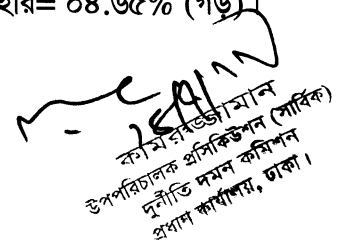 হার= ০৪.৬৫% (গড়)।
কামরুজ্জামান
উপপরিচালক প্রসিকিউশন (সার্বিক)
দুর্নীতি দমন কমিশন
প্রধান কার্যালয়, ঢাকা।